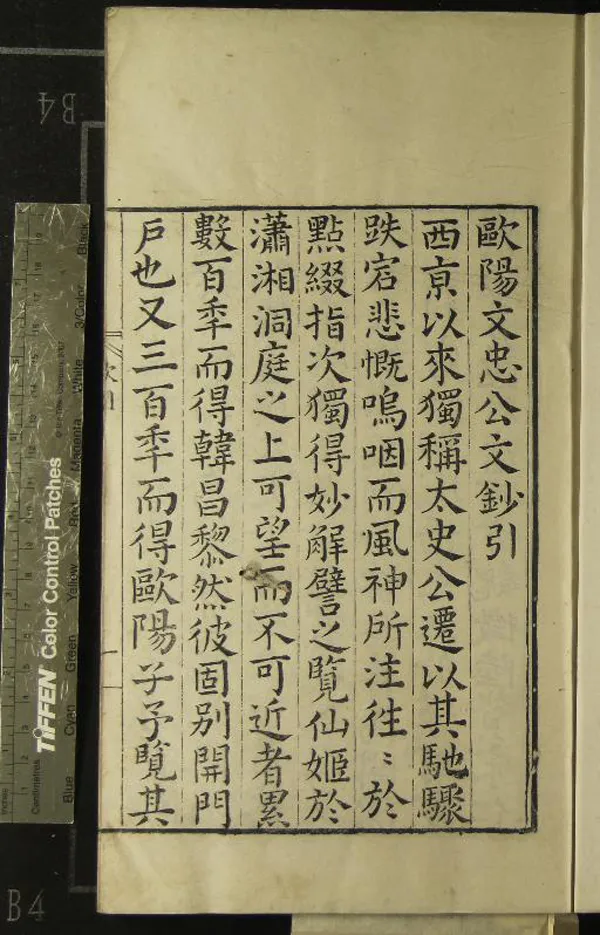 歐陽文忠公文鈔引
西亰以來獨稱太史公遷以其馳驟
跌宕悲慨嗚咽而風神所注徃〻於
點綴指次獨得妙解譬之覽仙姬於
瀟湘洞庭之上可望而不可近者累
數百秊而得韓昌黎然彼固別開門
戶也又三百秊而得歐陽子予覽其
B4
B4
TIFFEN Color Control Patches
Inches
Centimetres
Blue
Cyan
Green
Yellow
Red
Magenta
White
3/Color
Black